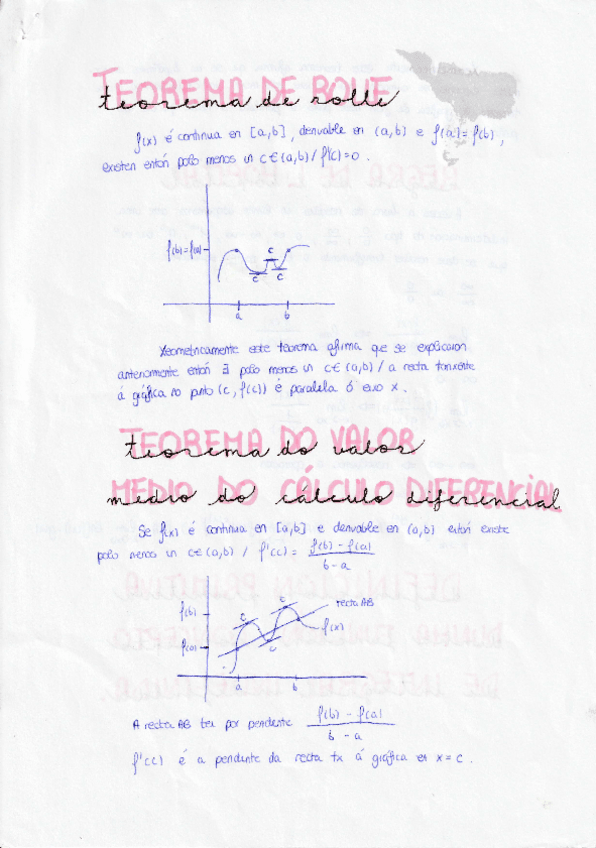 TEOREMA DE ROLLE
teorema de rolle
f(x) é continua en [a,b], derivable en (a,b) e f(a)=f(b),
existen entón polo menos un c∈(a,b) / f'(c)=0.
f(b)=f(a)
c
c c
a b
Xeometricamente este teorema afirma que se explicaron
anteriormente entón ∃ polo menos un c∈(a,b) / a recta tanxente
á gráfica no punto (c, f(c)) é paralela ó eixo x.
TEOREMA DO VALOR
teorema do valor
MEDIO DO CÁLCULO DIFERENCIAL
medio do cálculo diferencial
Se f(x) é continua en [a,b] e derivable en (a,b) entón existe
polo menos un c∈(a,b) / f'(c) = f(b) - f(a)
b - a
f(b)
c c
recta AB
f(x)
f(a)
c
a b
A recta AB ten por pendente f(b) - f(a)
b - a
f'(c) é a pendente da recta tx á gráfica en x = c.